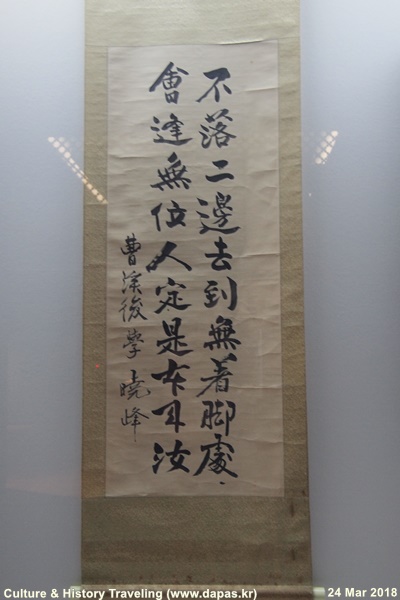 不落二邊去到無着脚處
會逢無位人定是本來汝
曹溪後學 曉峰
Culture & History Traveling (www.dapas.kr)
24 Mar 2018